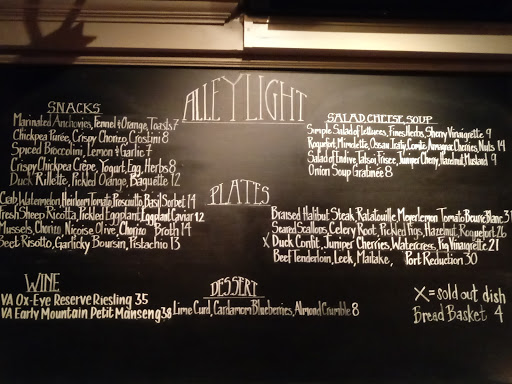 ALLEYLIGHT
SNACKS
Marinated Anchovies, Fennel & Orange, Toasts 7
Chickpea Purée, Crispy Chorizo, Crostini 8
Spiced Broccolini, Lemon & Garlic 7
Crispy Chickpea Crêpe, Yogurt, Egg, Herbs 8
Duck Rillette, Pickled Orange, Baguette 12
SALAD, CHEESE, SOUP
Simple Salad of Lettuces, Fines Herbs, Sherry Vinaigrette 9
Roquefort, Mimolette, Ossau Iraty, Comté, Amarena Cherries, Nuts 14
Salad of Endive, Frisee, Juniper Cherry, Hazelnut, Mustard 9
Onion Soup Gratinée 8
PLATES
Crab Watermelon, Heirloom Tomato Prosciutto, Basil Sorbet 14
Fresh Sheep Ricotta, Pickled Eggplant, Eggplant Caviar 12
Mussels, Chorizo, Niçoise Olive, Chorizo Broth 14
Beet Risotto, Garlicky Boursin, Pistachio 13
Braised Halibut Steak, Ratatouille, Meyer Lemon Tomato Beurre Blanc 31
Seared Scallops, Celery Root, Pickled Figs, Hazelnut, Roquefort 26
X Duck Confit, Juniper Cherries, Watercress, Fig Vinaigrette 21
Beef Tenderloin, Leek, Maitake, Port Reduction 30
WINE
VA Ox-Eye Reserve Riesling 35
VA Early Mountain Petit Manseng 38
DESSERT
Lime Curd, Cardamom Blueberries, Almond Crumble 8
X = sold out dish
Bread Basket 4